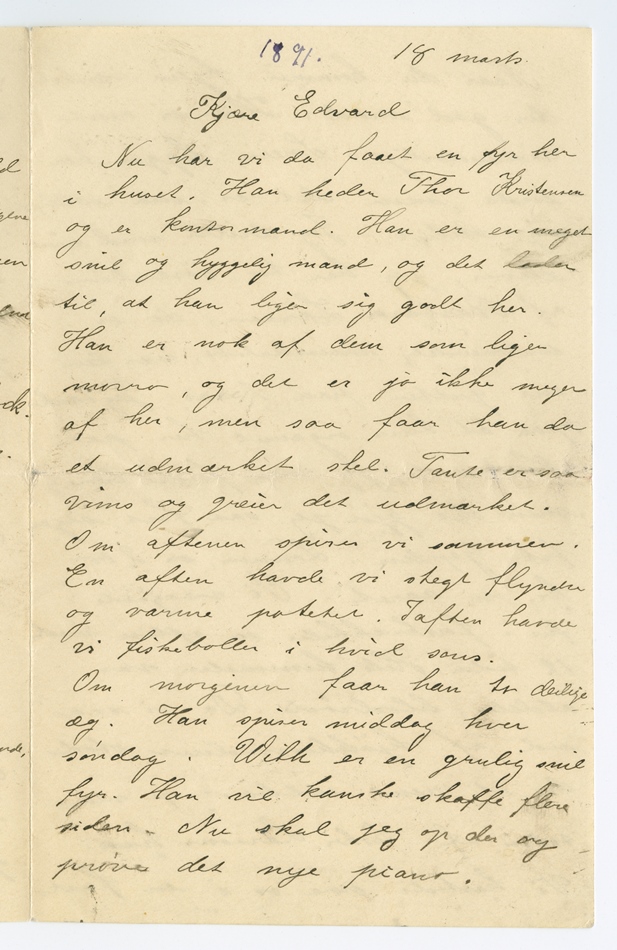 1891. 18 marts.
Kjære Edvard
Nu har vi da faaet en fyr her
i huset. Han heder Thor Kristensen
og er kontormand. Han er en meget
snil og hyggelig mand, og det lader
til, at han liger sig godt her.
Han er nok af dem som liger
morro, og det er jo ikke meget
af her, men saa faar han da
et udmærket stel. Tante er saa
vims og greier det udmærket.
Om aftenen spiser vi sammen.
En aften havde vi stegt flyndre
og varme poteter. Iaften havde
vi fiskeboller i hvid saus.
Om morgenen faar han to deilige
æg. Han spiser middag hver
søndag. With er en grulig snil
fyr. Han vil kanske skaffe flere
siden. Nu skal jeg op der og
prøve det nye piano.